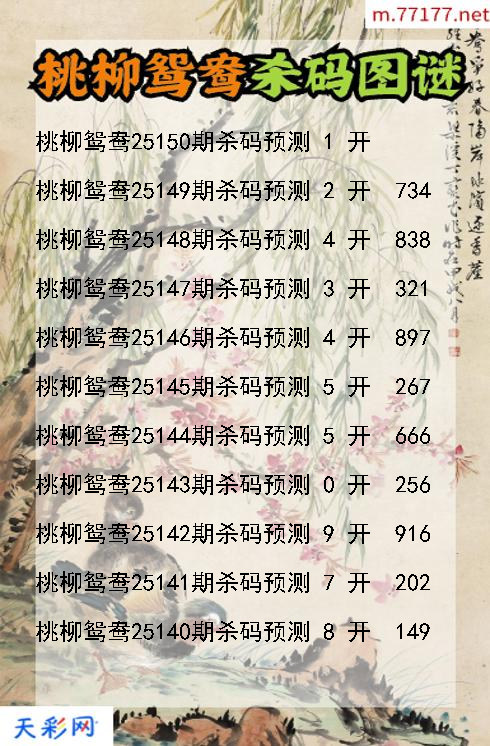 m.77177.net
桃柳鸳鸯杀码图谜
桃柳鸳鸯25150期杀码预测 1 开
桃柳鸳鸯25149期杀码预测 2 开 734
桃柳鸳鸯25148期杀码预测 4 开 838
桃柳鸳鸯25147期杀码预测 3 开 321
桃柳鸳鸯25146期杀码预测 4 开 897
桃柳鸳鸯25145期杀码预测 5 开 267
桃柳鸳鸯25144期杀码预测 5 开 666
桃柳鸳鸯25143期杀码预测 0 开 256
桃柳鸳鸯25142期杀码预测 9 开 916
桃柳鸳鸯25141期杀码预测 7 开 202
桃柳鸳鸯25140期杀码预测 8 开 149
天彩网